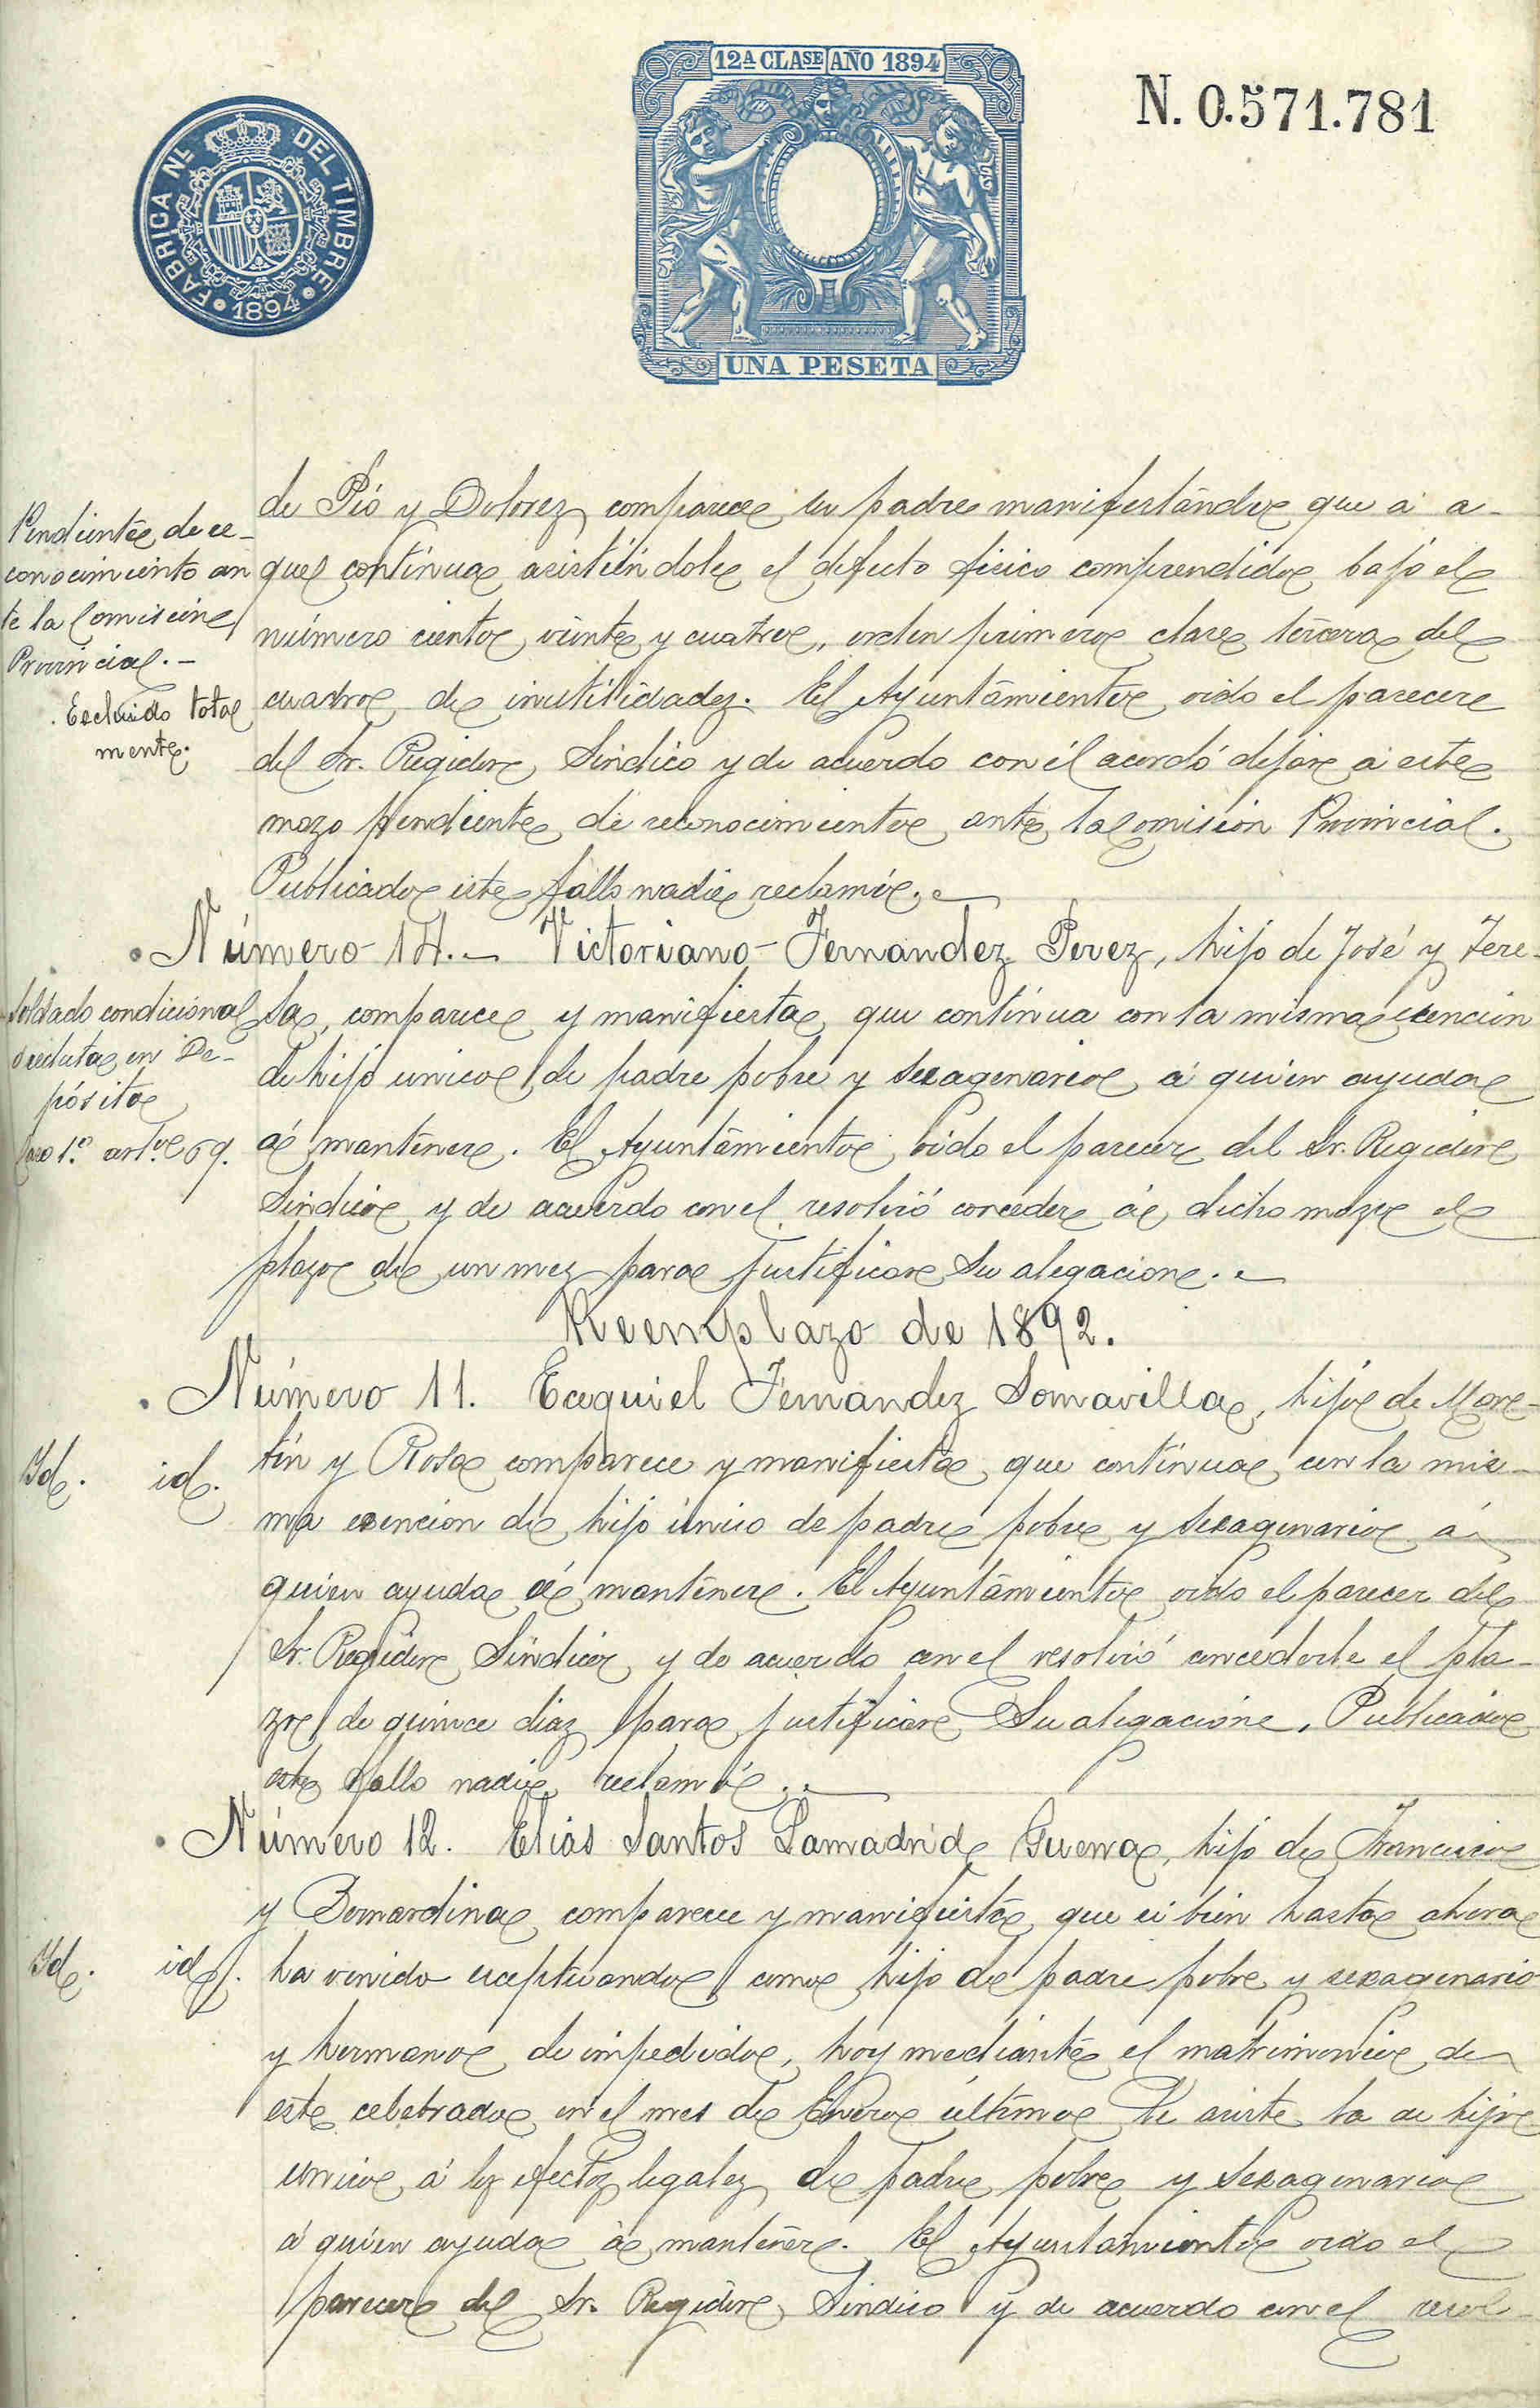 12ª CLASE AÑO 1894
N. 0.571.781
FABRICA NL. DEL TIMBRE
1894
UNA PESETA
Pendiente de re-
conocimiento an
te la Comision
Provincial.-
Escluido total
mente.
de Pío y Dolores comparece su padre manifestándo que á a-
quel contínua asistiéndole el defecto físico comprendido bajo el
número ciento veinte y cuatro, orden primero clase tercera del
cuadro de inutilidades. El Ayuntamiento oido el parecer
del Sr. Regidor Síndico y de acuerdo con él acordó dejar á este
mozo pendiente de reconocimiento ante la Comision Provincial.
Publicado este fallo nadie reclamó.
Número 14.- Victoriano Fernandez Perez, hijo de José y Tere-
Soldado condicional
ó recluta en De-
pósito
Caso 1.º art.º 69.
sa, comparece y manifiesta que contínua con la misma exencion
de hijo unico de padre pobre y sexagenario á quien ayuda
á mantener. El Ayuntamiento oido el parecer del Sr. Regidor
Síndico y de acuerdo con el resolvió conceder á dicho mozo el
plazo de un mes para justificar su alegacion.
Reemplazo de 1892.
Número 11. Ecequiel Fernandez Somavilla, hijo de Mar-
Id. id.
tín y Rosa comparece y manifiesta que contínua con la mis-
ma exencion de hijo único de padre pobre y sexagenario á
quien ayuda á mantener. El Ayuntamiento oido el parecer del
Sr. Regidor Síndico y de acuerdo con el resolvió concederle el pla-
zo de quince dias para justificar su alegacion. Publicado
este fallo nadie reclamó.
Número 12. Elias Santos Lamadrid Guerra, hijo de Francisco
y Bernardina comparece y manifiesta que si bien hasta ahora
Id. id.
ha venido exceptuando como hijo de padre pobre y sexagenario
y hermano de impedido, hoy mediante el matrimonio de
este celebrado en el mes de Enero último le asiste la de hijo
unico á los efectos legales de padre pobre y sexagenario
á quien ayuda á mantener. El Ayuntamiento oido el
parecer del Sr. Regidor Sindico y de acuerdo con el resol-